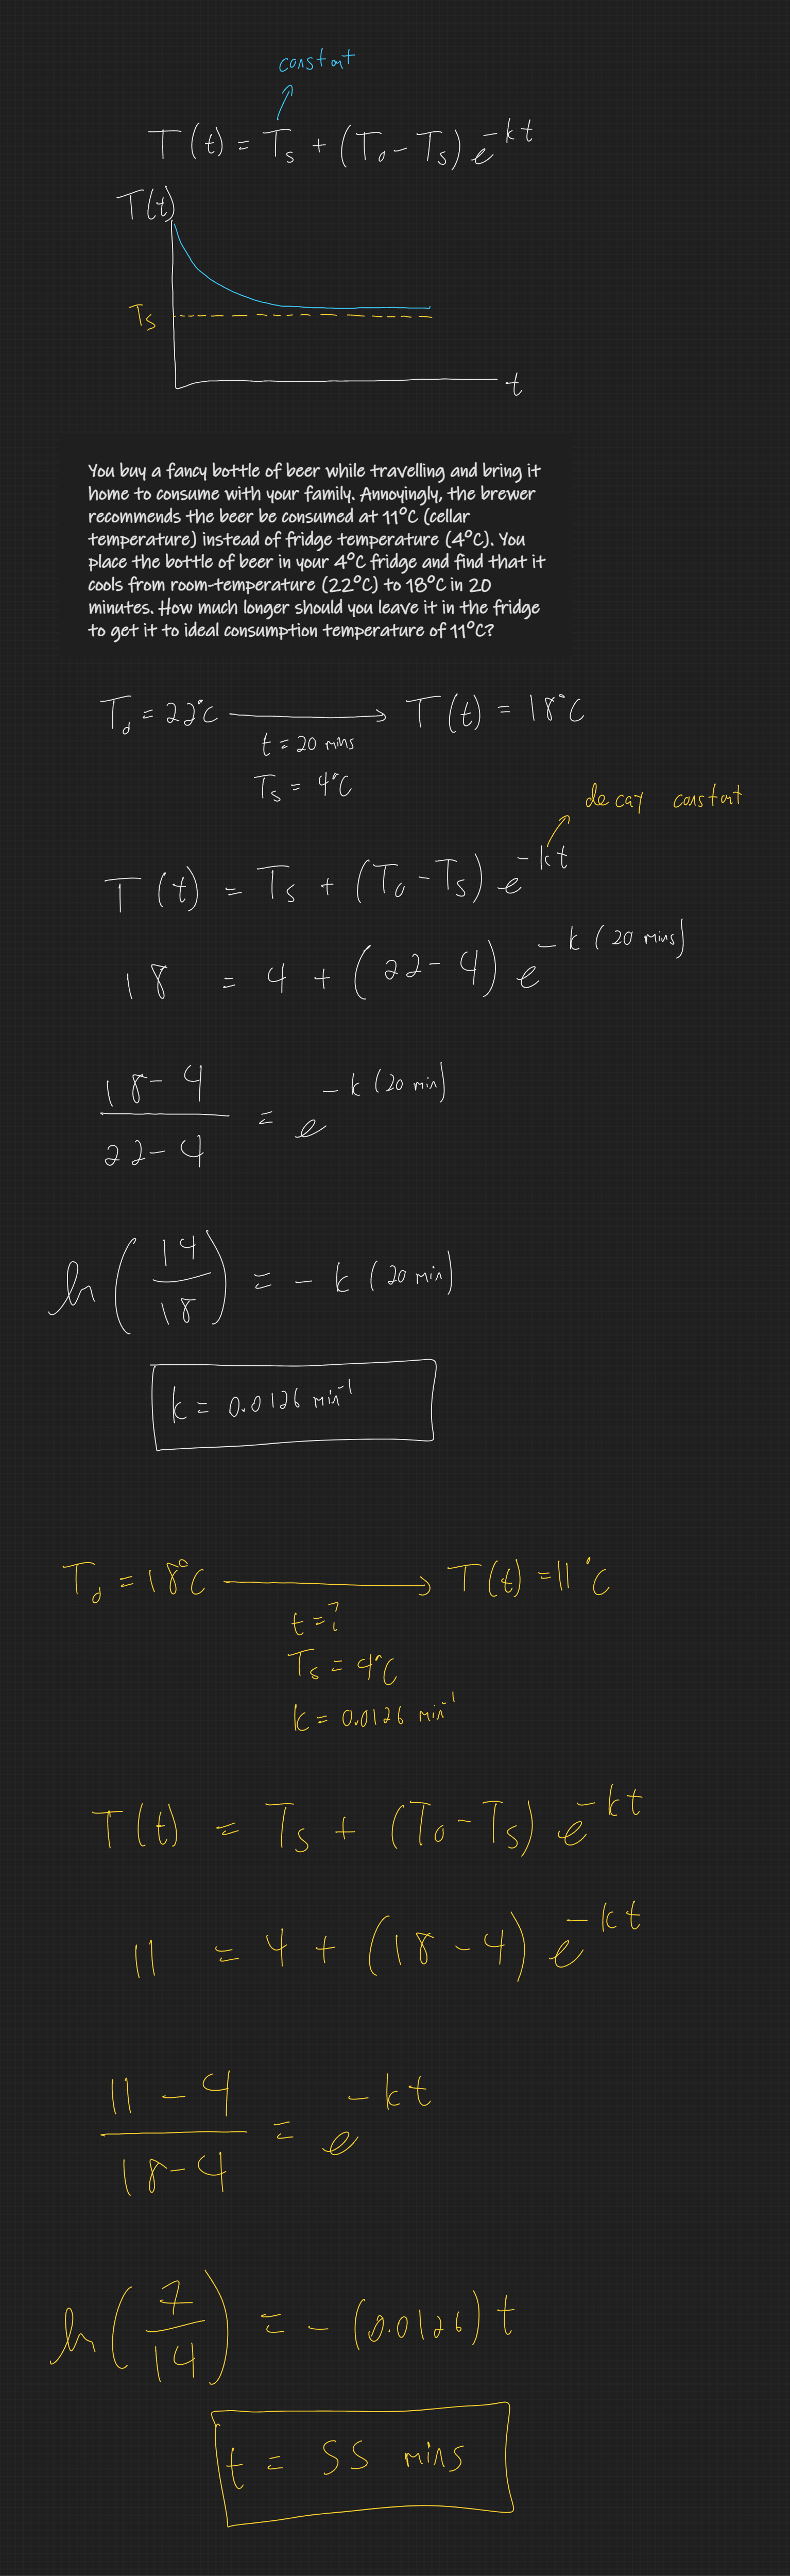 constant
T(t) = Tₛ + (T₀ - Tₛ) e^(-kt)
T(t)
Tₛ
t
You buy a fancy bottle of beer while travelling and bring it
home to consume with your family. Annoyingly, the brewer
recommends the beer be consumed at 11°C (cellar
temperature) instead of fridge temperature (4°C). You
place the bottle of beer in your 4°C fridge and find that it
cools from room-temperature (22°C) to 18°C in 20
minutes. How much longer should you leave it in the fridge
to get it to ideal consumption temperature of 11°C?
T₀ = 22°C → T(t) = 18°C
t = 20 mins
Tₛ = 4°C
decay constant
T(t) = Tₛ + (T₀ - Tₛ) e^(-kt)
18 = 4 + (22 - 4) e^(-k (20 mins))
(18 - 4)/(22 - 4) = e^(-k (20 min))
ln(14/18) = -k (20 min)
k = 0.0126 min⁻¹
T₀ = 18°C → T(t) = 11°C
t = ?
Tₛ = 4°C
k = 0.0126 min⁻¹
T(t) = Tₛ + (T₀ - Tₛ) e^(-kt)
11 = 4 + (18 - 4) e^(-kt)
(11 - 4)/(18 - 4) = e^(-kt)
ln(7/14) = -(0.0126) t
t = 55 mins